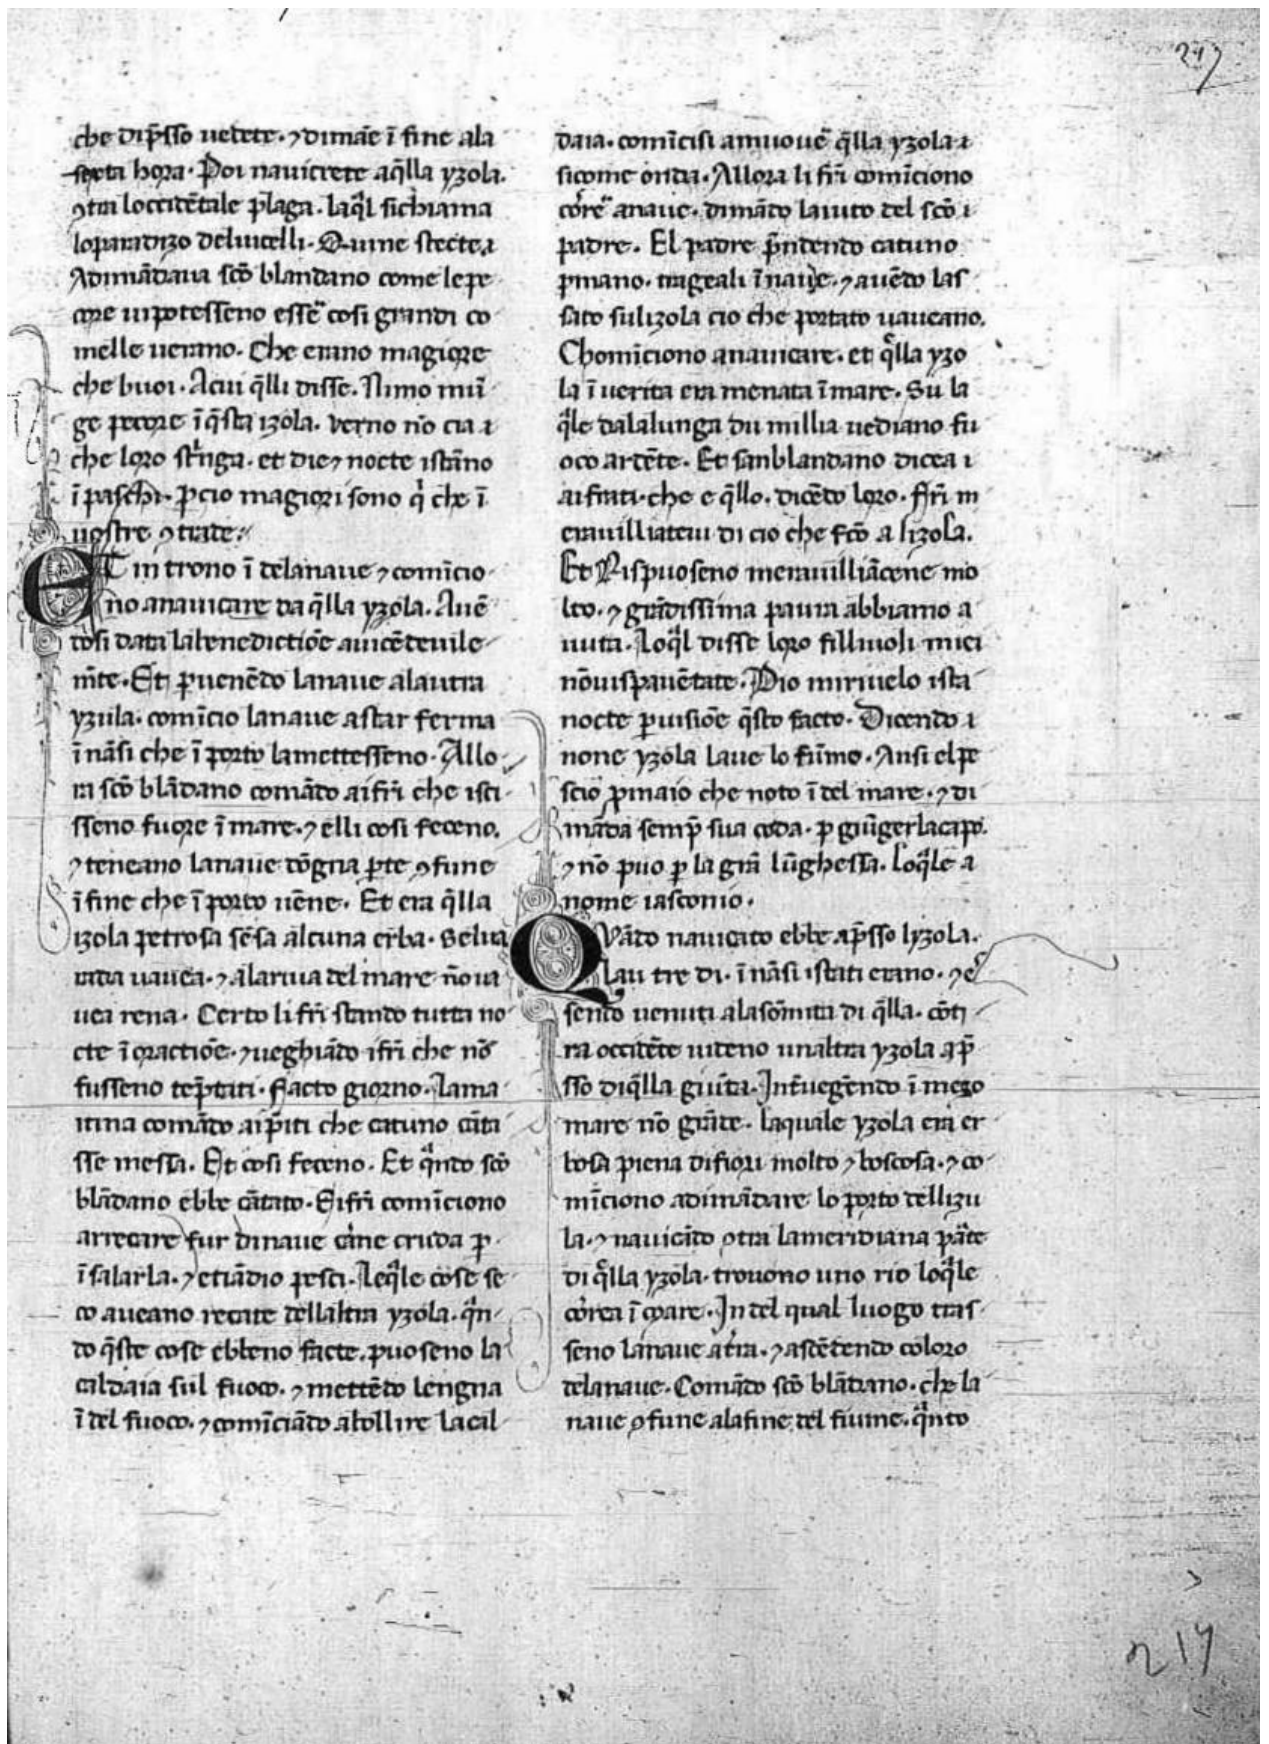 247
che dip̄sso uedete· ⁊ dimāe ī fine ala
sexta hora· Poi nauicrete aq̄lla yzola·
ꝯtra loccidētale plaga· laq̄l sichiama
loparadizo deluicelli· Quiui stecte· ⁊
Adimādaua sc̄o blandano come le pe
core iui potesseno esser̄ cosi grandi co
melle uerano· Che erano magiore
che buoi· A cui q̄lli disse· Nimo mū
ge pecore ī q̄sta izola· verno nō cia ⁊
che loro strīga· et die ⁊ nocte istāno
ī paschi· ꝑcio magiori sono q̇ che ī
uostre ꝯtrate·
ET in trono ī delanaue ⁊ comīcio
no anauicare da q̄lla yzola· Auē
dosi data la benedictiōe auicēdeuile
mēte· Et ꝑuenēdo lanaue alautra
yzula· comīcio lanaue astar ferma
ī nāsi che ī porto lamettesseno· Allo
ra sc̄o blādano comādo ai fr̄i che isci
sseno fuore ī mare· ⁊ elli cosi feceno·
⁊ teneano lanaue dōgna ꝑte ꝯ fune
ī fine che ī porto uēne· Et era q̄lla
izola petrosa sēsa alcuna erba· Selua
rada uauea· ⁊ alariua del mare nō ui
uea rena· Certo li fr̄i stando tutta no
cte ī oractiōe· ⁊ ueghiādo ifr̄i che nō
fusseno tēptati· Facto giorno· Lama
itina comādo ai p̄iti che catuno cāta
sse messa· Et cosi feceno· Et q̄ndo sc̄o
blādano ebbe cātato· Ei fr̄i comīciono
arrecare fur dinaue carne cruda ꝑ
ī salarla· ⁊ etiādio pesci· Leq̄le cose se
co aueano recate dellaltra yzola· q̄n
do q̄ste cose ebbeno facte· puoseno la
caldaia sul fuoco· ⁊ mettēdo lengna
ī del fuoco· ⁊ comīciādo abollire lacal
daia· comīcisi amuouer̄ q̄lla yzola ⁊
sicome onda· Allora li fr̄i comīciono
correr̄ anaue· dimādo laiuto del sc̄o ⁊
padre· El padre p̄ndendo catuno
ꝑ mano· trageali ī naue· ⁊ auēdo las
sato sulizola cio che portato uaueano·
Chomīciono anauicare· et q̄lla yzo
la ī uerita era menata ī mare· Su la
q̄le dalalunga du millia uediano fu
oco ardēte· Et sanblandano dicea ⁊
ai frati· che e q̄llo· dicēdo loro· fr̄i m
erauilliateui di cio che fc̄o a lizola·
Et Rispuoseno merauilliācene mo
lto· ⁊ grādissima paura abbiamo a
uuta· Loq̄l disse loro filliuoli miei
nōuispauētate· Dio mi riuelo ista
nocte ꝑ uisiōe q̄sto facto· Dicendo ⁊
none yzola laue lo fūmo· Ansi el pe
scio ꝑmaio che noto ī del mare· ⁊ di
māda sēpr̄ sua coda· ꝑ giūger lacapo·
⁊ nō puo ꝑ la grā lūghessa· Loq̄le a
nome iasconio·
QVādo nauicato ebbe ap̄sso lyzola·
Lau tre di· ī nāsi istati erano· ⁊ e
sendo uenuti alasōmita di q̄lla· cōt
ra occidēte uideno unaltra yzola ap̄
sso diq̄lla giūta· Int̄uegnēdo ī mezo
mare nō grāde· laquale yzola era er
bosa piena di fiori molto ⁊ boscosa· ⁊ co
mīciono adimādare lo porto dellizu
la· ⁊ nauicādo ꝯtra lameridiana pa̅te
di q̄lla yzola· trouono uno rio loq̄le
correa ī mare· In del qual luogo tras
seno lanaue a trā· ⁊ ascēdendo coloro
delanaue· Comādo sc̄o blādano· che la
naue ꝯ fune alafine del fiume· q̄nto
217